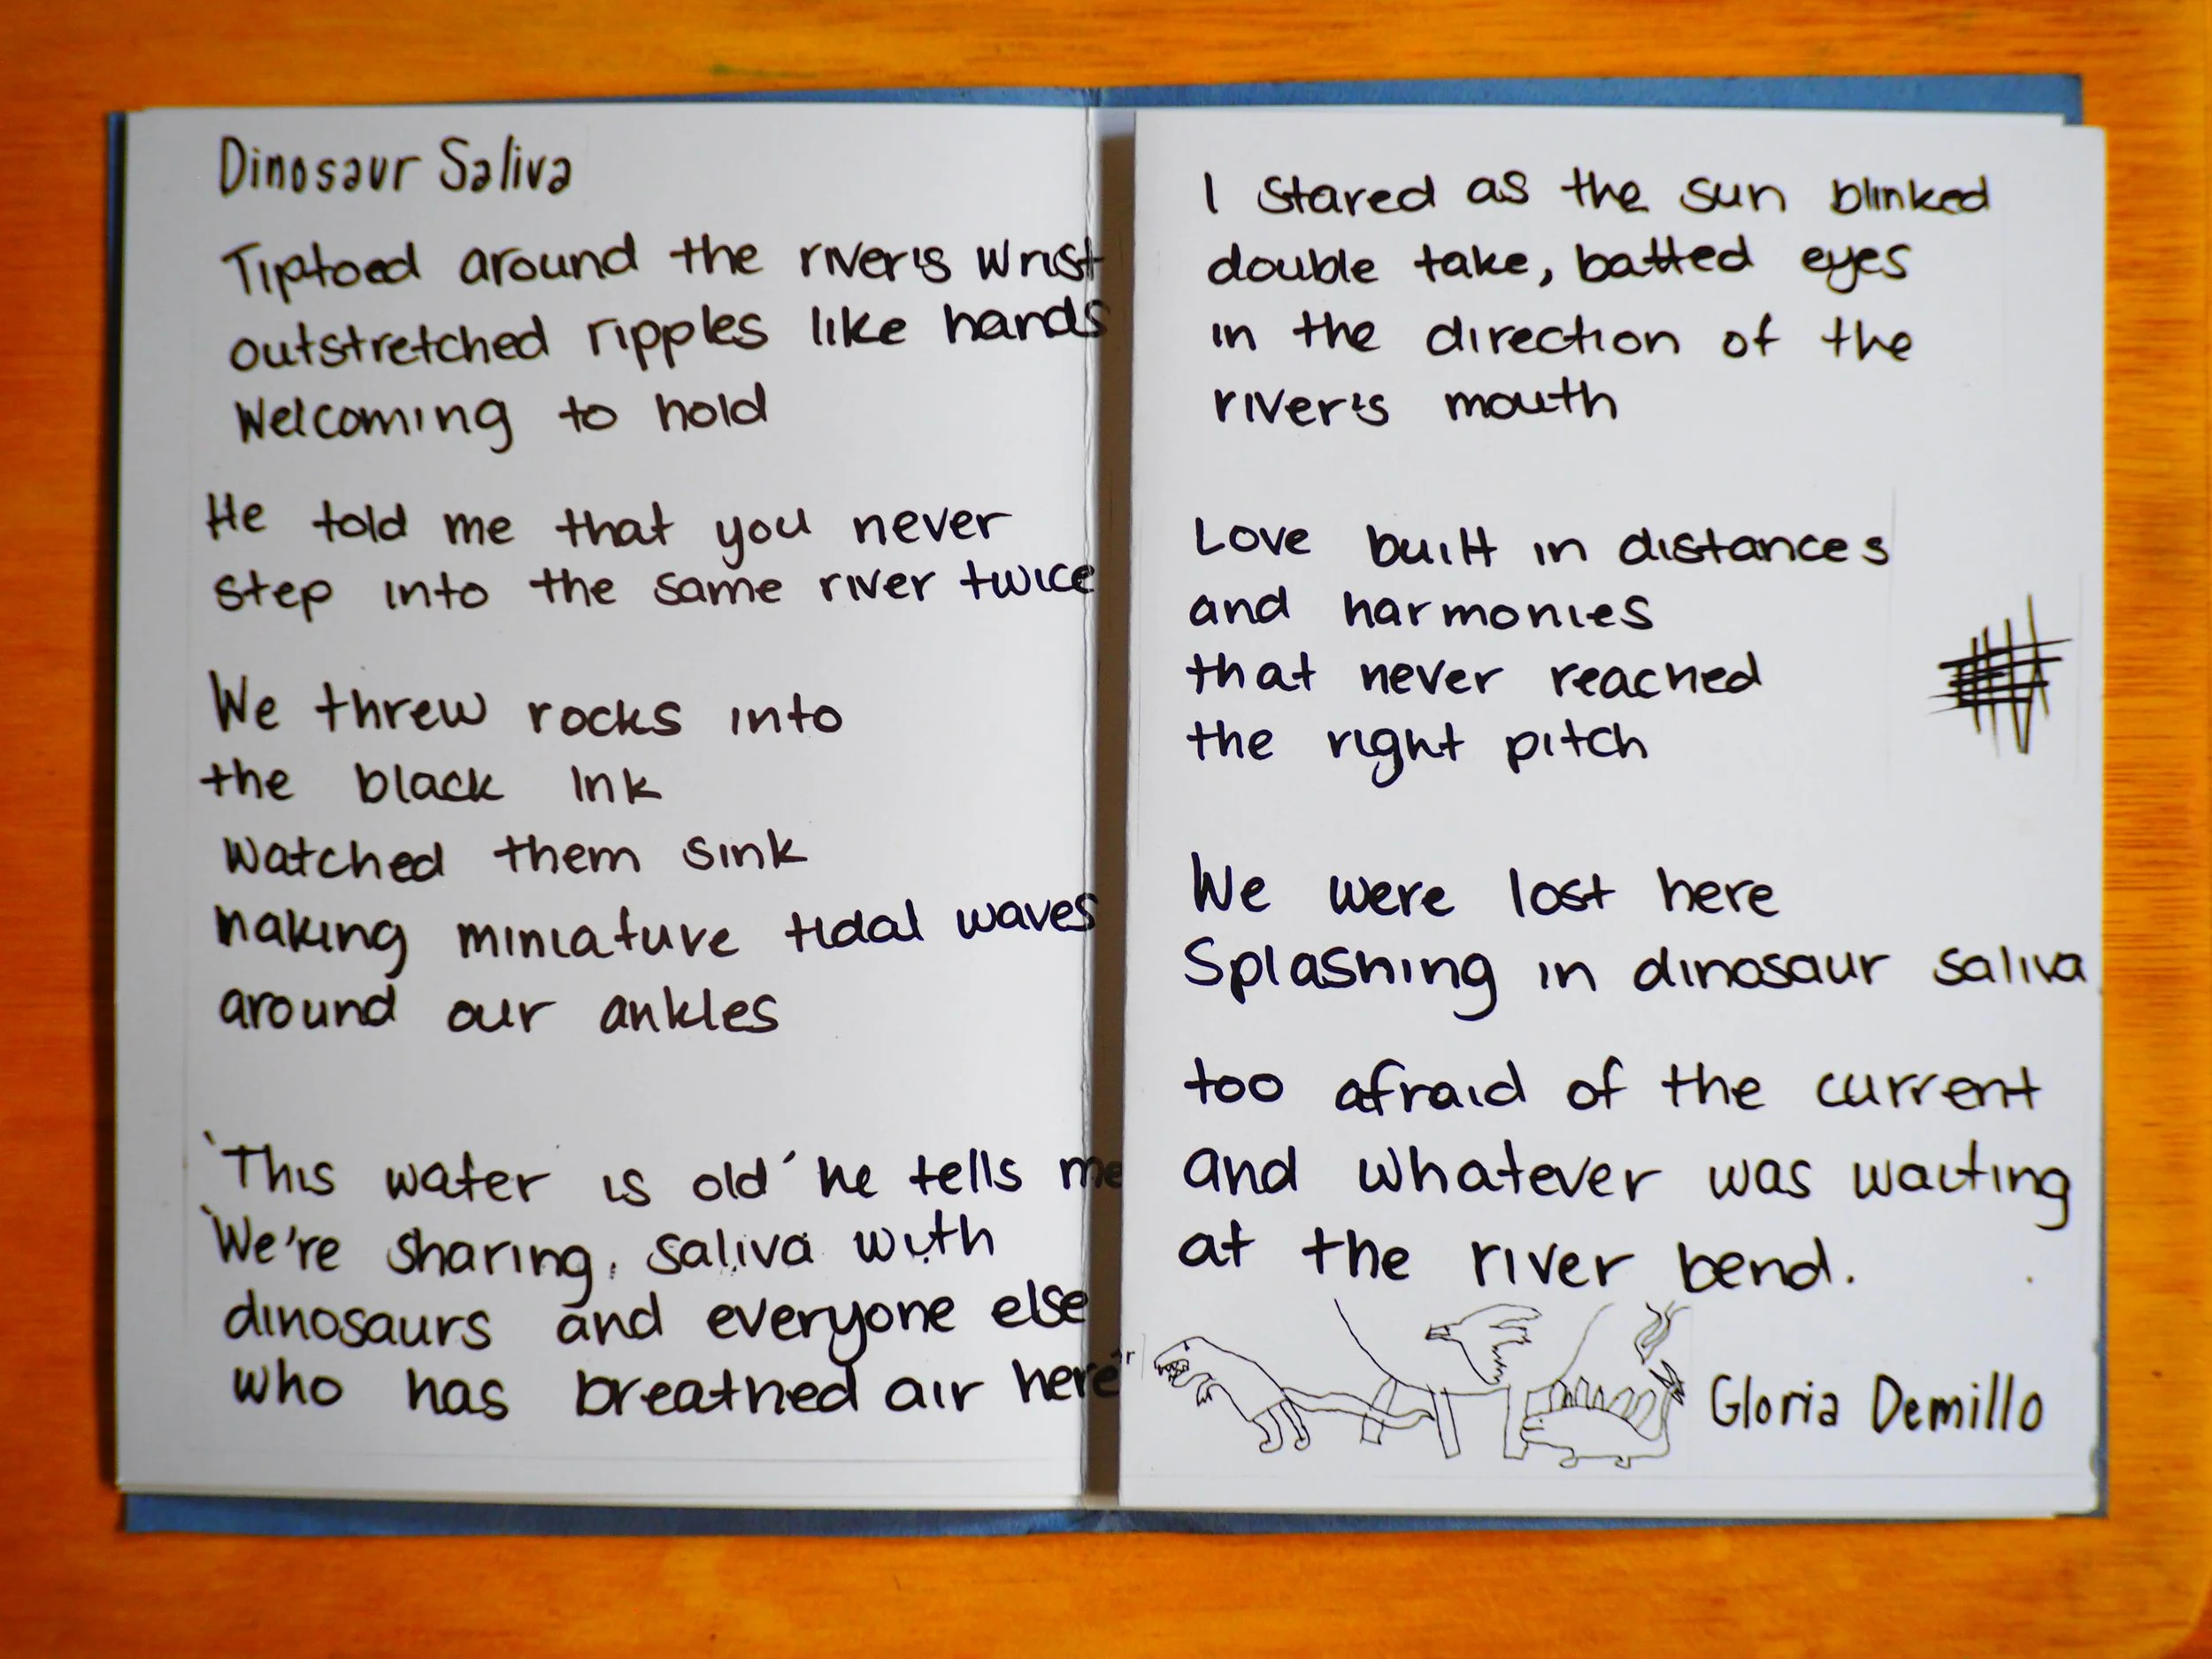 Dinosaur Saliva
Tiptoed around the river's wrist
outstretched ripples like hands
Welcoming to hold
He told me that you never
step into the same river twice
We threw rocks into
the black ink
watched them sink
making miniature tidal waves
around our ankles
'This water is old' he tells me
'We're sharing, saliva with
dinosaurs and everyone else
who has breathed air here'
I stared as the sun blinked
double take, batted eyes
in the direction of the
river's mouth
Love built in distances
and harmonies
that never reached
the right pitch
We were lost here
Splashing in dinosaur saliva
too afraid of the current
and whatever was waiting
at the river bend.
Gloria Demillo